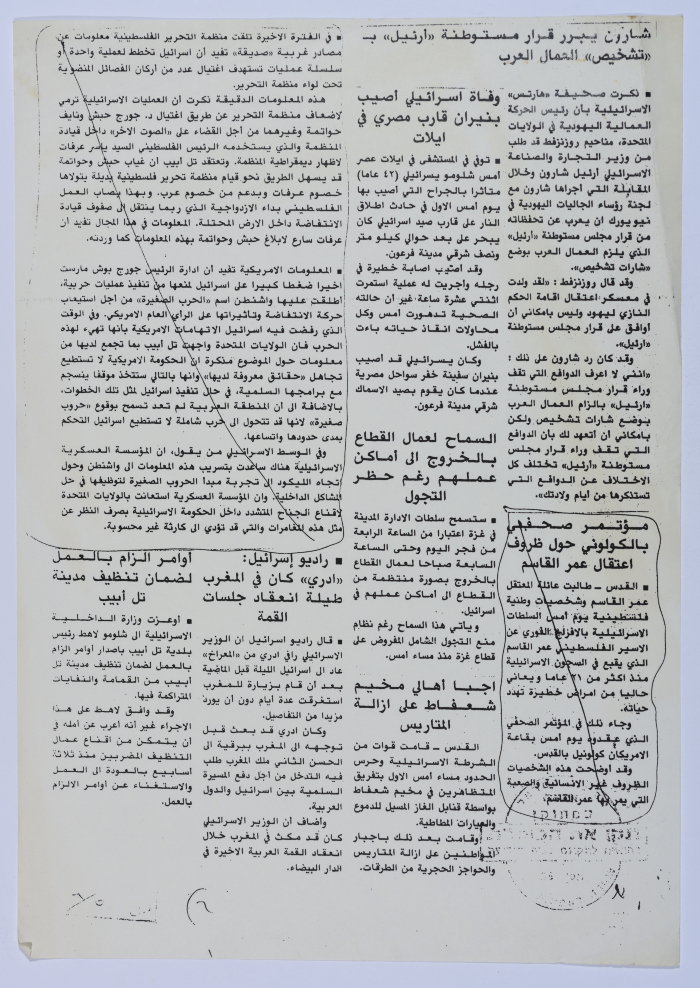 شارون يبرر قرار مستوطنة «أرئيل» بـ
«تشخيص» العمال العرب
■ ذكرت صحيفة «هآرتس»
الاسرائيلية بأن رئيس الحركة
العمالية اليهودية في الولايات
المتحدة، مناحيم روزنزفط قد طلب
من وزير التجارة والصناعة
الاسرائيلي أرئيل شارون وخلال
المقابلة التي أجراها شارون مع
لجنة رؤساء الجاليات اليهودية في
نيويورك ان يعرب عن تحفظاته
من قرار مجلس مستوطنة «أرئيل»
الذي يلزم العمال العرب بوضع
«شارات تشخيص».
وقد قال روزنزفط : «لقد ولدت
في معسكر اعتقال اقامة الحكم
النازي ليهود وليس بامكاني أن
أوافق على قرار مجلس مستوطنة
«أرئيل».
وقد كان رد شارون على ذلك :
«انني لا اعرف الدوافع التي تقف
وراء قرار مجلس مستوطنة
«ارئيل» بالزام العمال العرب
بوضع شارات تشخيص ولكن
بامكاني أن أتعهد لك بأن الدوافع
التي تقف وراء قرار مجلس
مستوطنة «أرئيل» تختلف كل
الاختلاف عن الدوافع التي
تستذكرها من أيام ولادتك».
مؤتمر صحفي
بالكولوني حول ظروف
اعتقال عمر القاسم
■ القدس ـ طالبت عائلة المعتقل
عمر القاسم وشخصيات وطنية
فلسطينية يوم أمس السلطات
الاسرائيلية بالافراج الفوري عن
الاسير الفلسطيني عمر القاسم
الذي يقبع في السجون الاسرائيلية
منذ اكثر من ٢١ عاما ويعاني
حاليا من امراض خطيرة تهدد
حياته.
وجاء ذلك في المؤتمر الصحفي
الذي عقدوه يوم أمس بقاعة
الامريكان كولونيل بالقدس.
وقد أوضحت هذه الشخصيات
الظروف غير الانسانية والصعبة
التي يمر بها عمر القاسم.
وفاة اسرائيلي أصيب
بنيران قارب مصري في
ايلات
■ توفي في المستشفى في ايلات عصر
أمس شلومو يسرائيلي (٤٢ عاما)
متاثرا بالجراح التي أصيب بها
يوم امس الاول في حادث اطلاق
النار على قارب صيد اسرائيلي كان
يبحر على بعد حوالي كيلو متر
ونصف شرقي مدينة فرعون.
وقد اصيب اصابة خطيرة في
رجله واجريت له عملية استمرت
اثنتي عشرة ساعة غير ان حالته
الصحية تدهورت امس وكل
محاولات انقاذ حياته باءت
بالفشل.
وكان يسرائيلي قد اصيب
بنيران سفينة خفر سواحل مصرية
عندما كان يقوم بصيد الاسماك
شرقي مدينة فرعون.
السماح لعمال القطاع
بالخروج الى أماكن
عملهم رغم حظر
التجول
■ ستسمح سلطات الادارة المدينة
في غزة اعتبارا من الساعة الرابعة
من فجر اليوم وحتى الساعة
السابعة صباحا لعمال القطاع
بالخروج بصورة منتظمة من
القطاع الى اماكن عملهم في
اسرائيل.
ويأتي هذا السماح رغم نظام
منع التجول الشامل المفروض على
قطاع غزة منذ مساء امس.
إجبا أهالي مخيم
شعفاط على ازالة
المتاريس
القدس ـ قامت قوات من
الشرطة الاسرائيلية وحرس
الحدود مساء امس الاول بتفريق
المتظاهرين في مخيم شعفاط
بواسطة قنابل الغاز المسيل للدموع
والعيارات المطاطية.
وقامت بعد ذلك باجبار
المواطنين على ازالة المتاريس
والحواجز الحجرية من الطرقات.
■ في الفترة الاخيرة تلقت منظمة التحرير الفلسطينية معلومات عن
مصادر غربية «صديقة» تفيد أن اسرائيل تخطط لعملية واحدة أو
سلسلة عمليات تستهدف اغتيال عدد من أركان الفصائل المنضوية
تحت لواء منظمة التحرير.
هذه المعلومات الدقيقة ذكرت أن العمليات الاسرائيلية ترمي
لاضعاف منظمة التحرير عن طريق اغتيال د. جورج حبش ونايف
حواتمة وغيرهما من أجل القضاء على «الصوت الآخر» داخل قيادة
المنظمة والذي يستخدمه الرئيس الفلسطيني السيد ياسر عرفات
لاظهار ديمقراطية المنظمة. وتعتقد تل أبيب ان غياب حبش وحواتمة
قد يسهل الطريق نحو قيام منظمة تحرير فلسطينية بديلة يتولاها
خصوم عرفات وبدعم من خصوم عرب. وبهذا يصاب العمل
الفلسطيني بداء الازدواجية الذي ربما ينتقل الى صفوف قيادة
الانتفاضة داخل الارض المحتلة. معلومات في هذا المجال تفيد أن
عرفات سارع لابلاغ حبش وحواتمة بهذه المعلومات كما وردته.
■ المعلومات الامريكية تفيد أن ادارة الرئيس جورج بوش مارست
اخيرا ضغطا كبيرا على اسرائيل لمنعها من تنفيذ عمليات حربية،
أطلقت عليها واشنطن اسم «الحرب الصغيرة» من أجل استيعاب
حركة الانتفاضة وتأثيراتها على الرأي العام الامريكي. وفي الوقت
الذي رفضت فيه اسرائيل الاتهامات الامريكية بأنها تهيء لهذه
الحرب فان الولايات المتحدة واجهت تل أبيب بما تجمع لديها من
معلومات حول الموضوع منكرة ان الحكومة الامريكية لا تستطيع
تجاهل «حقائق معروفة لديها» وانها بالتالي ستتخذ موقفا ينسجم
مع برامجها السلمية، في حال تنفيذ اسرائيل مثل تلك الخطوات،
بالاضافة الى أن المنطقة العربية لم تعد تسمح بوقوع «حروب
صغيرة» لانها قد تتحول الى حرب شاملة لا تستطيع اسرائيل التحكم
بمدى حدودها واتساعها.
وفي الوسط الاسرائيلي من يقول، ان المؤسسة العسكرية
الاسرائيلية هناك ساعدت بتسريب هذه المعلومات الى واشنطن وحول
اتجاه الليكود الى تجربة مبدأ الحروب الصغيرة لتوظيفها في حل
المشاكل الداخلية. وان المؤسسة العسكرية استعانت بالولايات المتحدة
لاقناع الجناح المتشدد داخل الحكومة الاسرائيلية بصرف النظر عن
مثل هذه المغامرات والتي قد تؤدي الى كارثة غير محسوبة.
■ راديو إسرائيل:
«ادري» كان في المغرب
طيلة انعقاد جلسات
القمة
■ قال راديو اسرائيل ان الوزير
الاسرائيلي رافي ادري من «المعراخ»
عاد الى اسرائيل الليلة قبل الماضية
بعد أن قام بزيارة للمغرب
استغرقت عدة أيام دون أن يورد
مزيدا من التفاصيل.
وكان ادري قد بعث قبل
توجهه الى المغرب ببرقية الى
الحسن الثاني ملك المغرب طلب
فيه التدخل من أجل دفع المسيرة
السلمية بين اسرائيل والدول
العربية.
وأضاف أن الوزير الاسرائيلي
كان قد مكث في المغرب خلال
انعقاد القمة العربية الاخيرة في
الدار البيضاء.
أوامر الزام بالعمل
لضمان تنظيف مدينة
تل أبيب
■ اوعزت وزارة الداخلية
الاسرائيلية الى شلومو لاهط رئيس
بلدية تل أبيب باصدار اوامر الزام
بالعمل لضمان تنظيف مدينة تل
أبيب من القمامة والنفايات
المتراكمة فيها.
وقد وافق لاهط على هذا
الاجراء غير أنه أعرب عن أمله في
أن يتمكن من اقناع عمال
التنظيف المضربين منذ ثلاثة
أسابيع بالعودة الى العمل
والاستغناء عن أوامر الالزام
بالعمل.